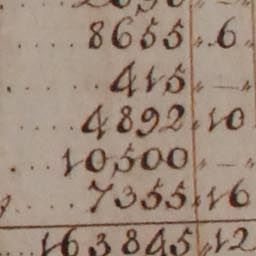 8655 „ 6
415 „ —
4892 „ 10
10500 „ —
7355 „ 16
163845 „ 12